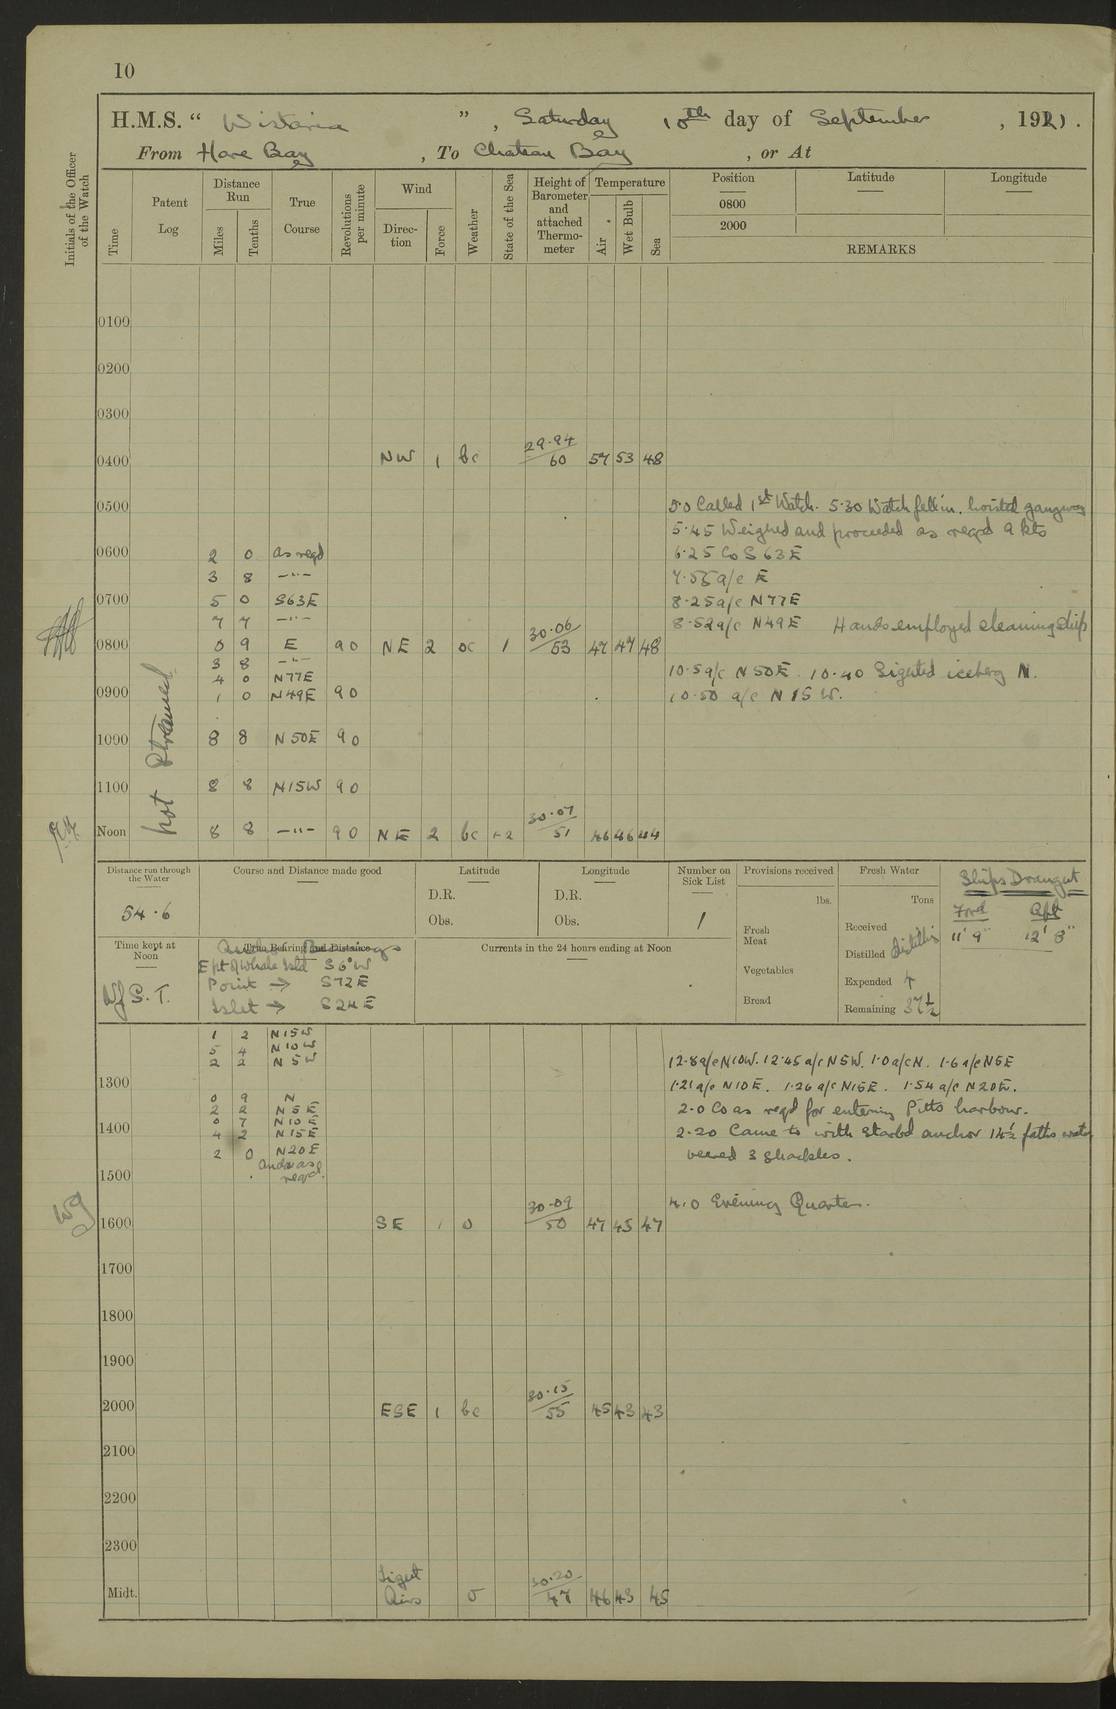 10
H.M.S. " Wistaria ", Saturday 10th day of September, 1921.
From Hare Bay, To Chateau Bay, or At
Initials of the Officer of the Watch
Time
Patent Log
Distance Run
Miles
Tenths
True Course
Revolutions per minute
Wind
Direction
Force
Weather
State of the Sea
Height of Barometer and attached Thermometer
Temperature
Air
Wet Bulb
Sea
Position Latitude Longitude
0800
2000
REMARKS
0100
0200
0300
0400 NW 1 bc 29.94 / 60 57 53 48
0500 5.0 Called 1st Watch. 5.30 Watch fell in. hoisted gangway
5.45 Weighed and proceeded as reqd 9 kts
0600 2 0 as reqd 6.25 Co S 63 E
3 8 -"- 7.55 a/c E
0700 5 0 S63E 8.25 a/c N77E
7 7 -"- 8.52 a/c N49E Hands employed cleaning ship
0800 0 9 E 90 NE 2 oc 1 30.06 / 53 47 47 48
3 8 -"-
4 0 N77E 10.5 a/c N 50 E. 10.40 Sighted iceberg N.
0900 1 0 N49E 90 10.50 a/c N 15 W.
not streamed
1000 8 8 N50E 90
1100 8 8 N15W 90
Noon 8 8 -"- 90 NE 2 bc 1-2 30.07 / 51 46 46 44
Distance run through the Water
54.6
Course and Distance made good
Latitude
D.R.
Obs.
Longitude
D.R.
Obs.
Number on Sick List
1
Provisions received
lbs.
Fresh Meat
Vegetables
Bread
Fresh Water
Tons
Received
Distilled Distilling
Expended 4
Remaining 37½
Ships Draught
Ford Aft
11' 9" 12' 8"
Time kept at Noon
S.T.
True Bearing and Distance
Anchor Bearings
E pt of Whale Isld S 6° W
Point → S 72 E
Islet → S 24 E
Currents in the 24 hours ending at Noon
1 2 N15W
5 4 N10W
2 2 N 5 W 12.8 a/c N10W. 12.45 a/c N5W. 1.0 a/c N. 1.6 a/c N5E
1300 1.21 a/c N10E. 1.26 a/c N15E. 1.54 a/c N20E.
0 9 N
2 2 N 5 E 2.0 Co as reqd for entering Pitts harbour.
0 7 N10E
1400 4 2 N15E 2.20 Came to with starbd anchor 14½ faths water
2 0 N20E veered 3 shackles.
and as reqd.
1500
4.0 Evening Quarters.
1600 SE 1 o 30.09 / 50 47 45 47
1700
1800
1900
2000 ESE 1 bc 30.15 / 55 45 43 43
2100
2200
2300
Midt. Light Airs o 30.20 / 47 46 43 45